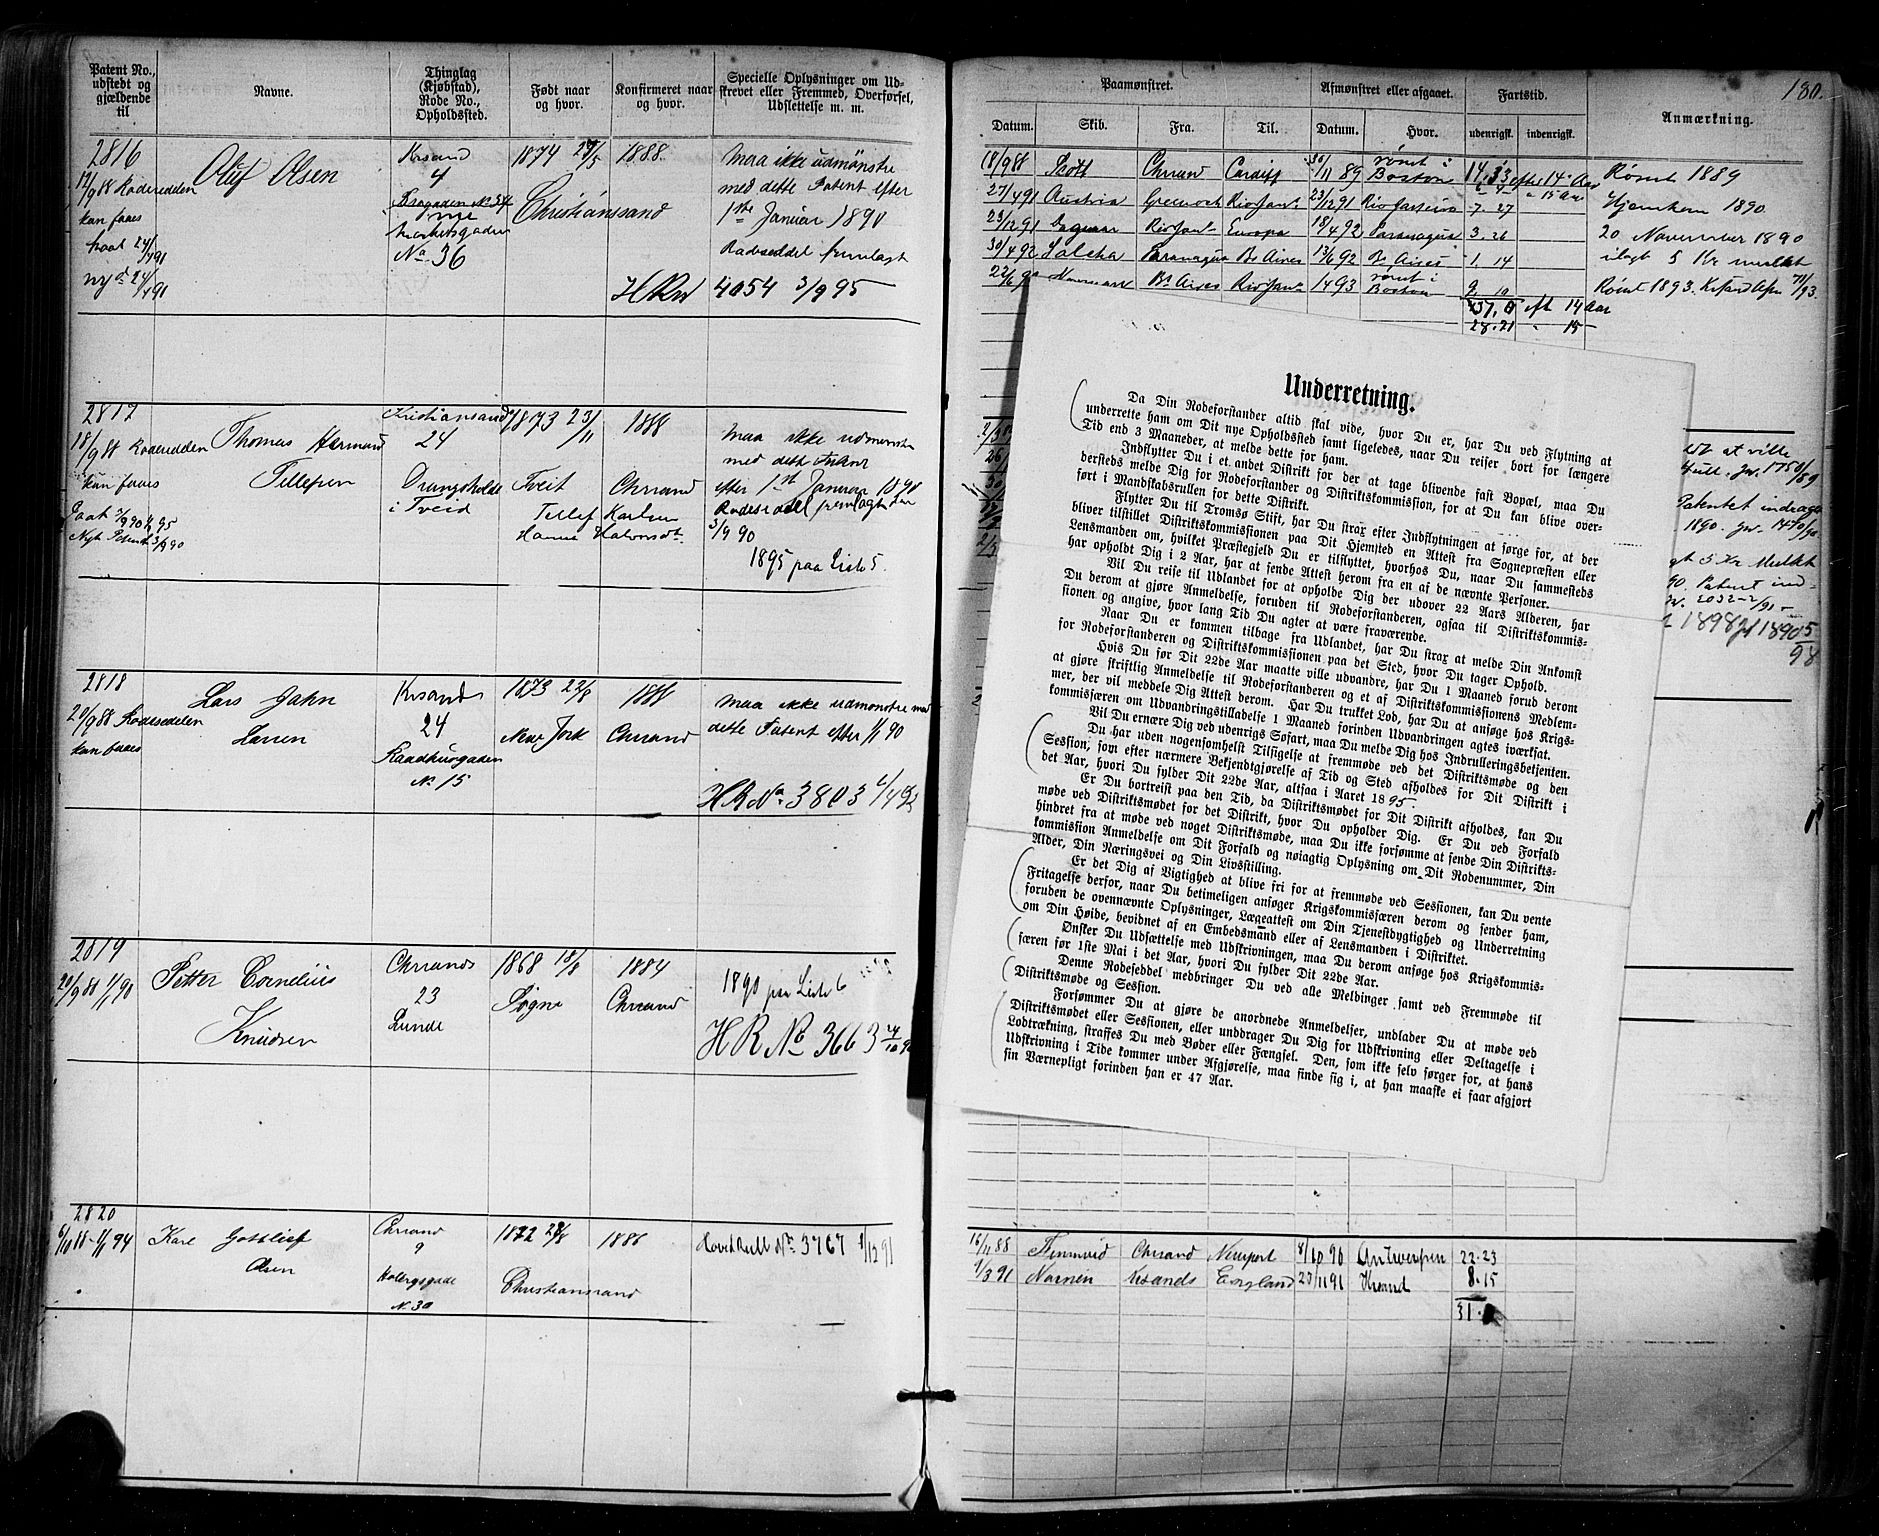 Patent No.,
udstedt og
gjældende
til
Navne.
Thinglag
(Kjøbstad),
Rode No.,
Opholdssted.
Født naar
og hvor.
Konfirmeret naar
og hvor.
Specielle Oplysninger om Ud-
skrevet eller Fremmed, Overførsel,
Udslettelse m. m.
2816
Oluf Olsen
Krsand
4
No 36
1874 27/5
Christiansand
1888
maa ikke udmønstre
med dette Patent efter
1ste Januar 1890
Rodeseddel fremlagt
HRN 4054 3/9 95
kan faaes
2817
18/9 88 Rodeseddelen
kan faaes
Thomas Herman
Tellefsen
Kristiansand
24
Drangsholdt
i Tveid
1873 23/11
Tveit
Tellef Karlsen
1888
Chrsand
maa ikke udmønstre
med dette Patent
efter 1ste Januar 1890
Rodeseddel fremlagt
3/9 90
1895 paa Liste 5.
2818
20/9 88 Rodesedelen
kan faaes
Lars Jahn
Larsen
Krsands
24
Raadhusgaden
N. 15
1873 22/8
New York
1888
Chrsand
maa ikke udmønstre med
dette Patent efter 1/1 90
HR No 3803
2819
20/9 88 1/1 90
Petter Cornelius
Knudsen
Chrsands
23
Lunde
1868 18/8
Søgne
1884
Chrsand
1890 paa Liste 6
HR No 3663
2820
6/10 88 - 1/1 94
Karl Gottlief
Olsen
Chrsand
9
Holbergsgade
N. 30
1872 28/8
Christianssand
1886
Hoved Rull No. 3767 1/12 91
180.
Paamønstret.
Afmønstret eller afgaaet.
Fartstid.
Anmærkning.
Datum.
Skib.
Fra.
Til.
Datum.
Hvor.
udenrigsk.
indenrigsk.
18/9 88 Scott Chrsand Cardiff 30/11 89 rømt i Boston
Rømt 1889
27/4 91 Austria Greenock Rio Jan. 23/12 91 Rio Janeiro 7. 27
Hjemkom 1890
23/12 91 Dagmar Rio Jan. Europa 18/4 92 Paranagua 3. 26
20 November 1890
30/4 92 Paranagua Bs Aires 13/6 92 Bs Aires 1. 14
ilagt 5 Kr mulkt
Bs Aires Rio Jan. 1493 rømt i Boston 9. 10
Rømt 1893.
28.21 " 15
Underretning.
Da Din Rodeforstander altid skal vide, hvor Du er, har Du ved Flytning at
underrette ham om Dit nye Opholdssted samt ligeledes, naar Du rejser bort for længere
Tid end 3 Maaneder, at melde dette for ham.
Indflytter Du i et andet Distrikt for der at tage blivende fast Bopæl, maa Du
dersteds melde Dig for Rodeforstander og Distriktskommission, for at Du kan blive over-
ført i Mandskabsrullen for dette Distrikt.
Flytter Du til Tromsø Stift, har Du strax efter Indflytningen at sørge for, at der
bliver tilstillet Distriktskommissionen paa Dit Hjemsted en Attest fra Sognepræsten eller
Lensmanden om, hvilket Præstegjeld Du er tilflyttet, hvorhos Du, naar Du sammesteds
har opholdt Dig i 2 Aar, har at sende Attest herom fra en af de nævnte Personer.
Vil Du reise til Udlandet for at opholde Dig der udover 22 Aars Alderen, har
Du derom at gjøre Anmeldelse, foruden til Rodeforstanderen, ogsaa til Distriktskommis-
sionen og angive, hvor lang Tid Du agter at være fraværende.
Naar Du er kommen tilbage fra Udlandet, har Du strax at melde Din Ankomst
for Rodeforstanderen og Distriktskommissionen paa det Sted, hvor Du tager Ophold.
Hvis Du før Dit 22de Aar maatte ville udvandre, har Du 1 Maaned forud derom
at gjøre skriftlig Anmeldelse til Rodeforstanderen og et af Distriktskommissionens Medlem-
mer, der vil meddele Dig Attest derom. Har Du trukket Lod, har Du at ansøge hos Krigs-
kommisjæren om Udvandringstilladelse 1 Maaned forinden Udvandringen agtes iværksat.
Vil Du ernære Dig ved udenrigs Søfart, maa Du melde Dig hos Indrulleringsbetjenten.
Du har uden nogensomhelst Tilsigelse at fremmøde ved det Distriktsmøde og den
Session, som efter nærmere Bekjendtgjørelse af Tid og Sted afholdes for Dit Distrikt i
det Aar, hvori Du fylder Dit 22de Aar, altsaa i Aaret 1895
Er Du bortreist paa den Tid, da Distriktsmødet for Dit Distrikt afholdes, kan Du
møde ved Distriktsmødet for det Distrikt, hvor Du opholder Dig. Er Du ved Forfald
hindret fra at møde ved noget Distriktsmøde, maa Du ikke forsømme at sende Din Distrikts-
kommission Anmeldelse om Dit Forfald og nøiagtig Oplysning om Dit Rodenummer, Din
Alder, Din Næringsvei og Din Livsstilling.
Er det Dig af Vigtighed at blive fri for at fremmøde ved Sessionen, kan Du vente
Fritagelse derfor, naar Du betimeligen ansøger Krigskommisjæren derom og sender ham,
foruden de ovennævnte Oplysninger, Lægeattest om Din Tjenestdygtighed og Underretning
om Din Høide, bevidnet af en Embedsmand eller af Lensmanden i Distriktet.
Ønsker Du Udsættelse med Udskrivningen, maa Du derom ansøge hos Krigskommis-
færen før 1ste Mai i det Aar, hvori Du fylder Dit 22de Aar.
Denne Rodeseddel medbringer Du ved alle Meldinger samt ved Fremmøde til
Distriktsmøde og Session.
Forsømmer Du at gjøre de anordnede Anmeldelser, undlader Du at møde ved
Distriktsmødet eller Sessionen, eller unddrager Du Dig for Udskrivning eller Deltagelse i
Lodtrækning, straffes Du med Bøder eller Fængsel. Den, som ikke selv sørger for, at hans
Udskrivning i Tide kommer under Afgjørelse, maa finde sig i, at han maaske ei faar afgjort
sin Værnepligt forinden han er 47 Aar.
at ville
Patentet indraget
5 Kr Mulkt
Patent ind-
16/11 88 Chrsand Newport 8/10 90 Antwerpen 22.23
1/3 91 Krsands England 20/11 91 8.15
31.